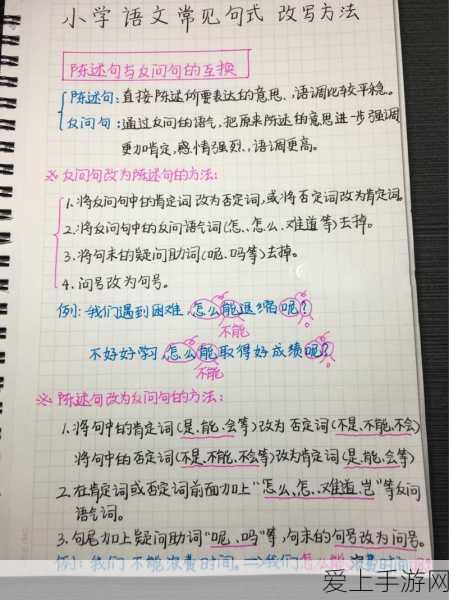 小学语文常见句式 改写方法
陈述句与反问句的互换
陈述句:直接陈述所要表达的意思,语调比较平稳。
反问句:通过反问的语气,把原来陈述的意思进一步强调
更加肯定,感情强烈,语调更高。
※反问句改为陈述句的方法:
1.将反问句中的肯定词改为否定词,或将否定词改为肯定词
2.将反问句中的反问语气词(怎、怎么、难道等)去掉。
3.将句末的疑问助词(呢、吗等)去掉。
4.问号改为句号。
例:我们遇到困难,怎么能退缩呢?
不能
不好好学习,怎么能取得好成绩呢?
不能
※陈述句改为反问句的方法:
1.将句中的肯定词(是、能、会等)改为否定词(不是、不能、不会)
将句中的否定词(不是、不能、不会等)改为肯定词(是、能、会等)
2.在肯定词或否定词前面加上"怎么、怎、难道、岂"等反问
语气词。
3.句尾加上疑问助词"呢、吗"等,句末的句号改为问号。
例:我们不能浪费时间。⇒我们怎么能浪费时间呢?
爱上手游网